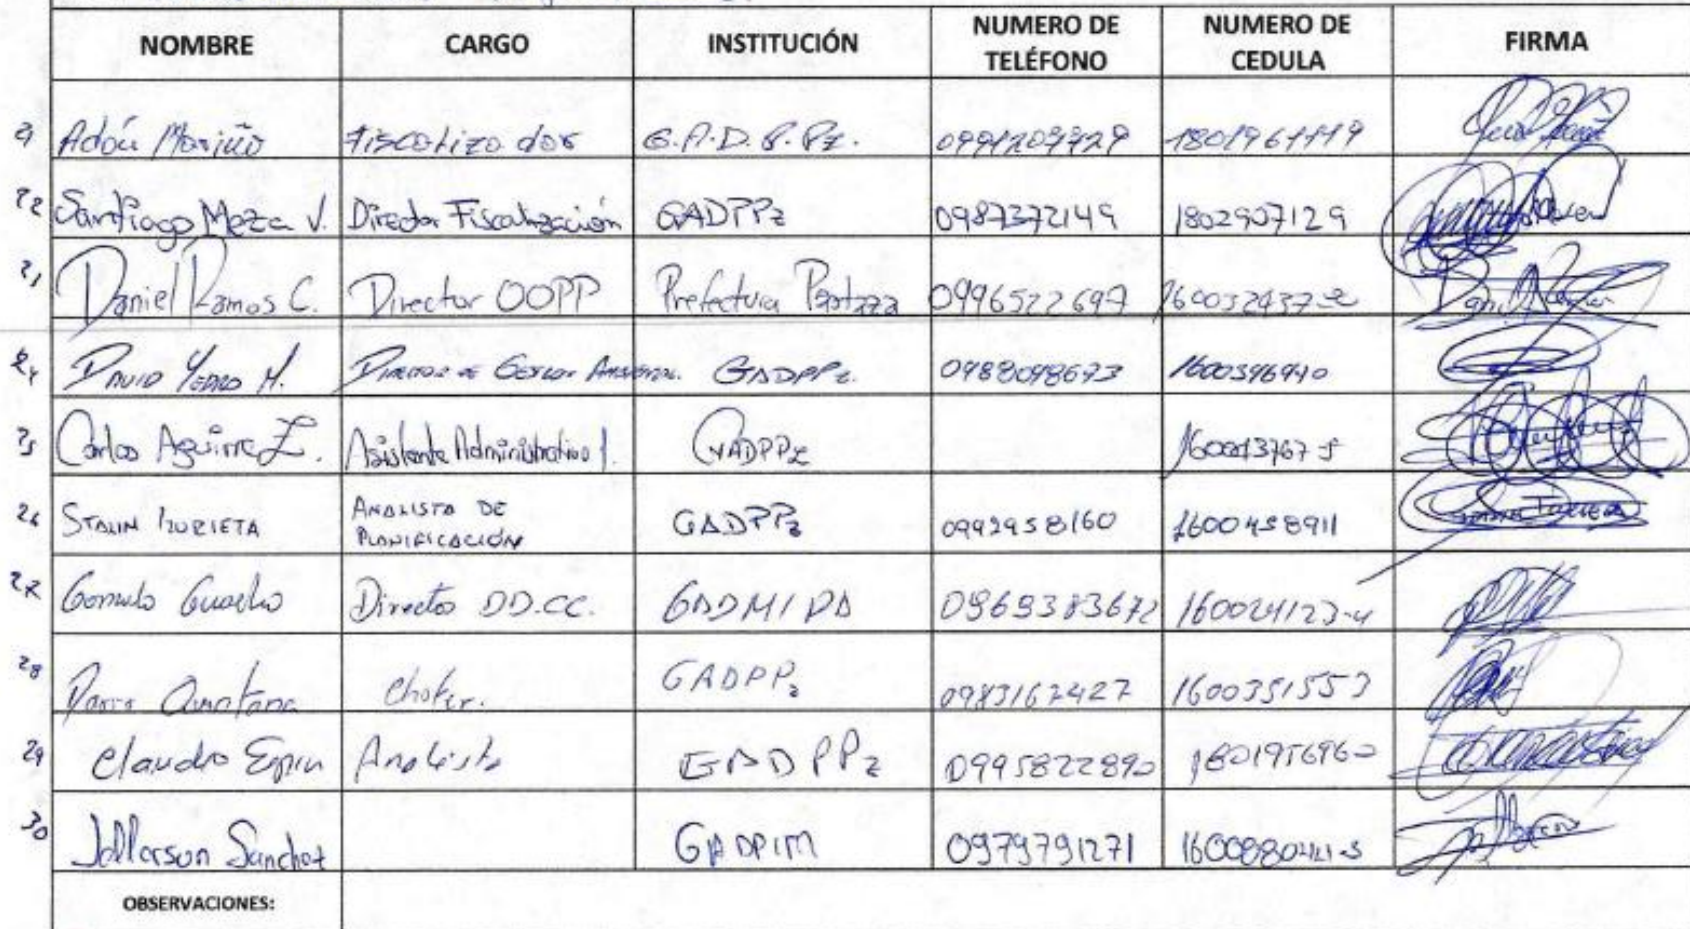 NOMBRE CARGO INSTITUCIÓN NUMERO DE TELÉFONO NUMERO DE CEDULA FIRMA
21 Adán Mariño Fiscalizador G.A.D.P.Pz.
22 Santiago Meza V. Director Fiscalización GADPPz 0987372149 1802907129
Daniel Ramos C. Director OOPP Prefectura Pastaza 0996522697 160032437-2
24 DAVID YEDRO M. GADPPz. 0988098673 1600396940
25 Carlos Aguirre Z. Asistente Administrativo 1. GADPPz
26 STALIN IZURIETA ANALISTA DE PLANIFICACIÓN GADPPz 0992958160 1600458911
27 Director DD.CC. 0969383672 160024123-4
28 Chofer. GADPPz 0983162427 1600351553
29 Claudio Espin Analista GADPPz 0995822890 1801956960
30 Jefferson Sanchez 0979791271
OBSERVACIONES: